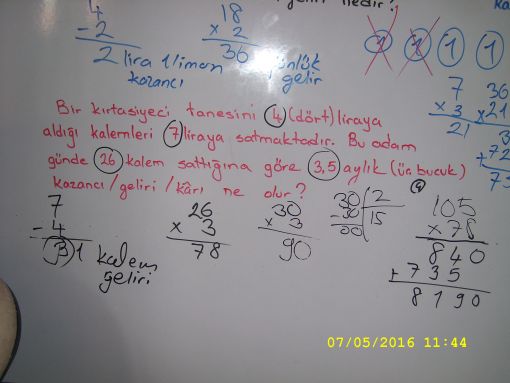 nedir?
4
18
- 2
x 2
2 lira 1 limon
36 günlük
kazancı
gelir
1 1 1 1
7 36
x 3 x 21
21 3
+ 72
Bir kırtasiyeci tanesini 4 (dört) liraya
aldığı kalemleri 7 liraya satmaktadır. Bu adam
günde 26 kalem sattığına göre 3,5 aylık (üç buçuk)
kazancı/geliri/kârı ne olur?
7 26 30 30 2 105
- 4 x 3 x 3 - 30 15 x 78
3 1 kalem 78 90 00 840
geliri + 735
8190
07/05/2016 11:44